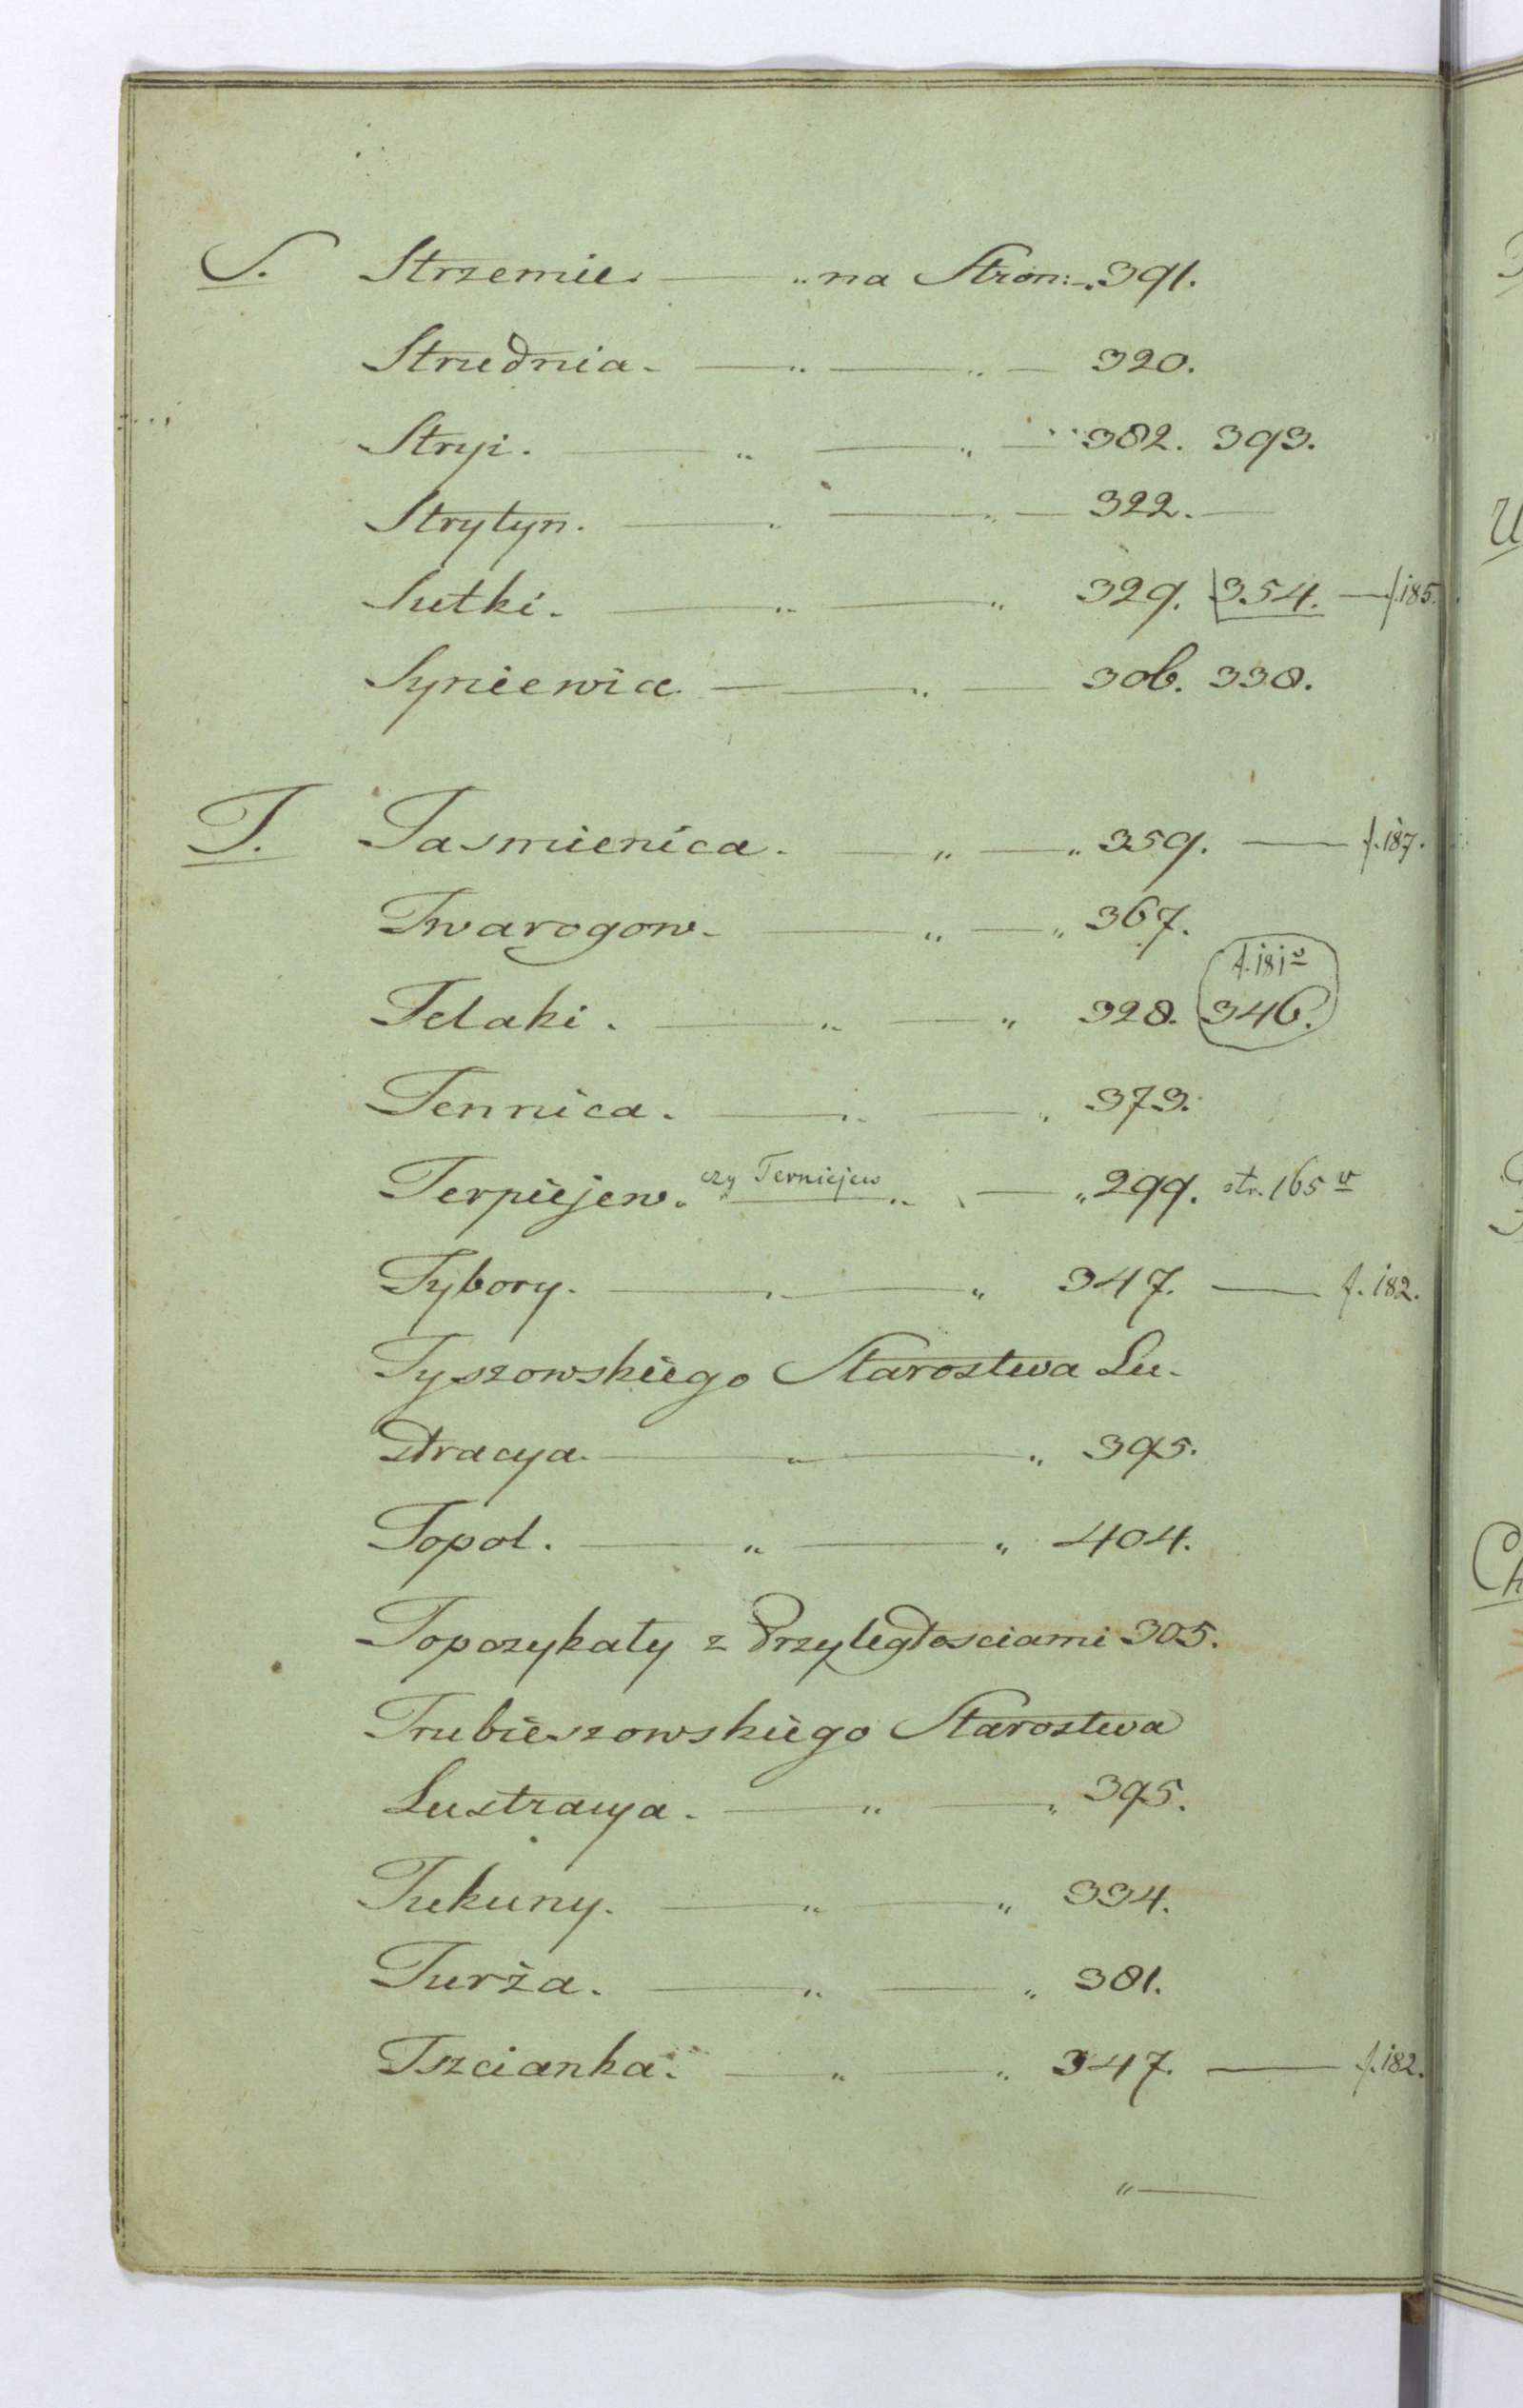 S. Strzemie. — „ na Stron: 391.
Strudnia. — „ — „ — 320.
Stryi. — „ — „ — 382. 393.
Strytyn. — „ — „ — 322. —
Sutki. — „ — „ 329. 354. — f. 185.
Syniewice — „ — 306. 338.
T. Tasmienica. — „ — „ 359. — f. 187.
Twarogow. — „ — „ 367.
f. 181 v
Telaki. — „ — „ 328. 346.
Tennica. — „ — „ 373.
Terpiejew. czy Terniejew „ — „ 299. str. 165 v
Tybory. — „ — „ 347. — f. 182.
Tyszowskiego Starostwa Lu-
stracya. — „ — „ 395.
Topol. — „ — „ 404.
Topozykały z Przyległosciami 305.
Trubieszowskiego Starostwa
Lustracya. — „ — „ 395.
Tukuny. — „ — „ 334.
Turża. — „ — „ 381.
Tszcianka. — „ — „ 347. — f. 182.
„ —
U
Ch